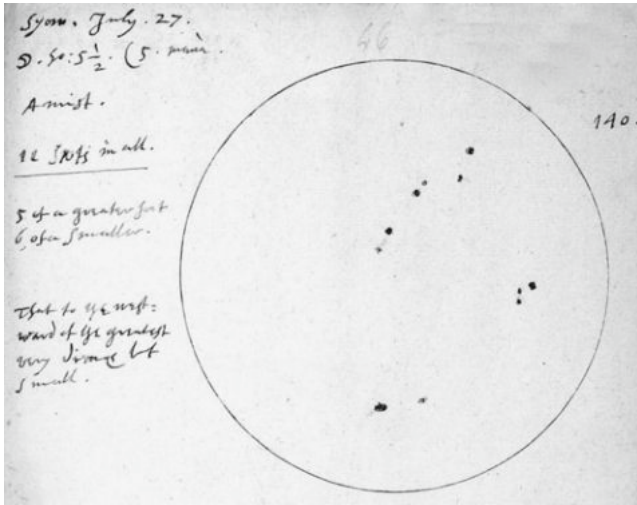 Syon. July. 27.
ho: 5 1/2. (5.
A mist.
spots in all.
5 of a greater sort
6, of a smaller.
That to ye west=
ward of the greatest
very but
small.
66
140.